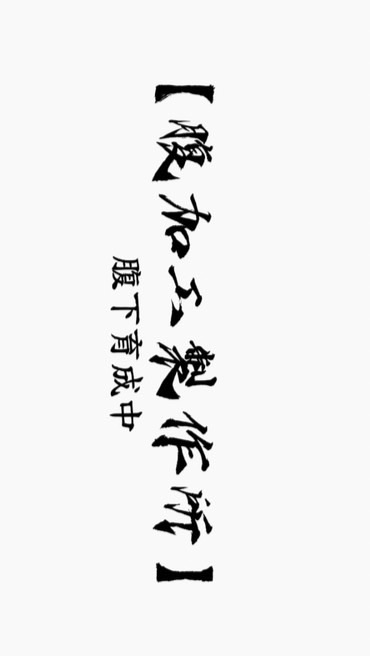 【腹加工製作所】
腹下育成中